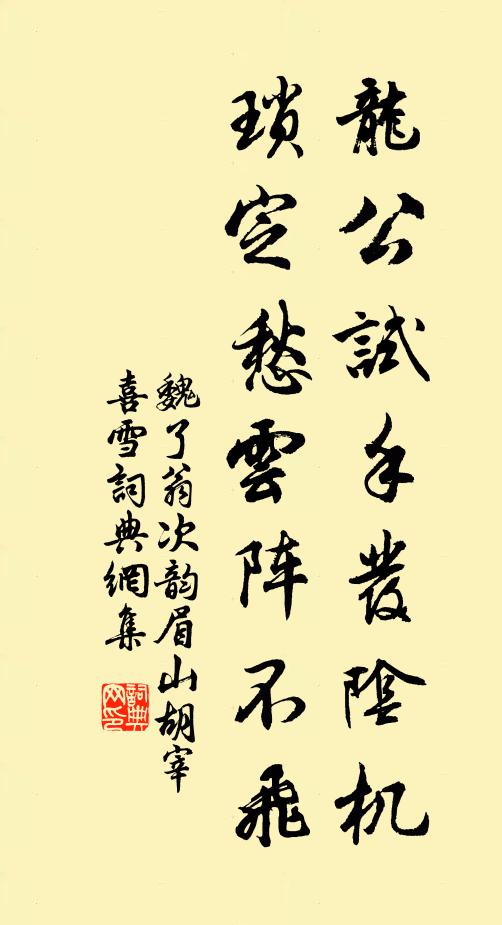 龍公試手發陰机
瑣定愁雲阵不飛
魏了翁次韵眉山胡宰
喜雪詞典網集
詞典网印